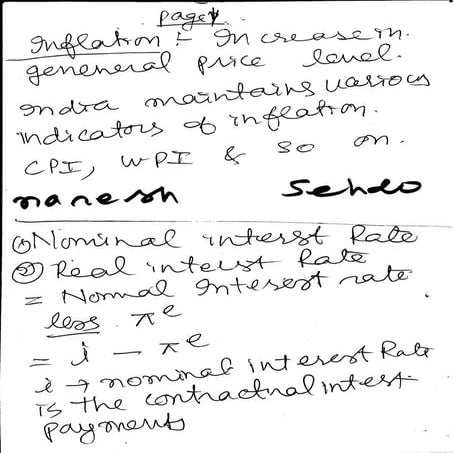 Page 1.
Inflation :- Increase in.
geneneral price level.
India maintains various
indicators of inflation.
CPI, WPI & so on.
Naresh Sehdo
① Nominal interst Rate
② Real interst Rate
= Normal Interest rate
less π^e
= i - π^e
i → nominal interest Rate
is the contractual interst
payments